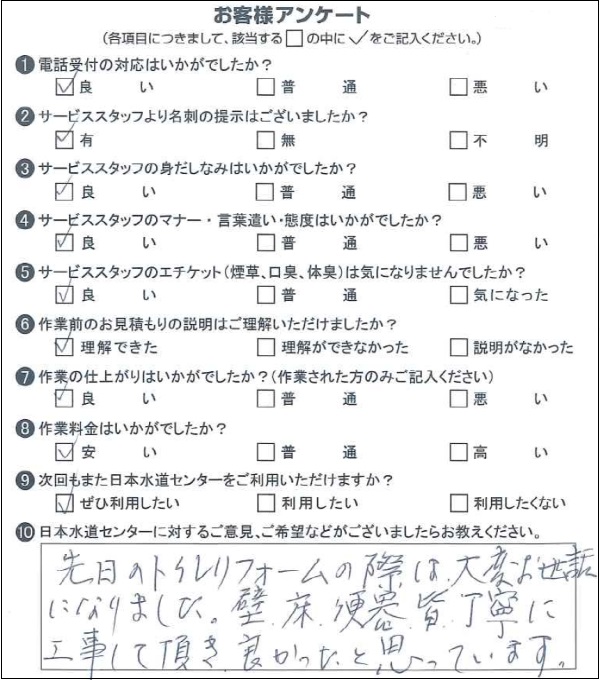 お客様アンケート
(各項目につきまして、該当する□の中に✓をご記入ください。)
❶電話受付の対応はいかがでしたか?
☑良い □普通 □悪い
❷サービススタッフより名刺の提示はございましたか?
☑有 □無 □不明
❸サービススタッフの身だしなみはいかがでしたか?
☑良い □普通 □悪い
❹サービススタッフのマナー・言葉遣い・態度はいかがでしたか?
☑良い □普通 □悪い
❺サービススタッフのエチケット(煙草、口臭、体臭)は気になりませんでたか?
☑良い □普通 □気になった
❻作業前のお見積もりの説明はご理解いただけましたか?
☑理解できた □理解ができなかった □説明がなかった
❼作業の仕上がりはいかがでしたか?(作業された方のみご記入ください)
☑良い □普通 □悪い
❽作業料金はいかがでしたか?
☑安い □普通 □高い
❾次回もまた日本水道センターをご利用いただけますか?
☑ぜひ利用したい □利用したい □利用したくない
❿日本水道センターに対するご意見、ご希望などがございましたらお教えください。
先日のトイレリフォームの際は、大変お世話
になりました。壁、床、便器、皆、丁寧に
工事して頂き、良かったと思っています。